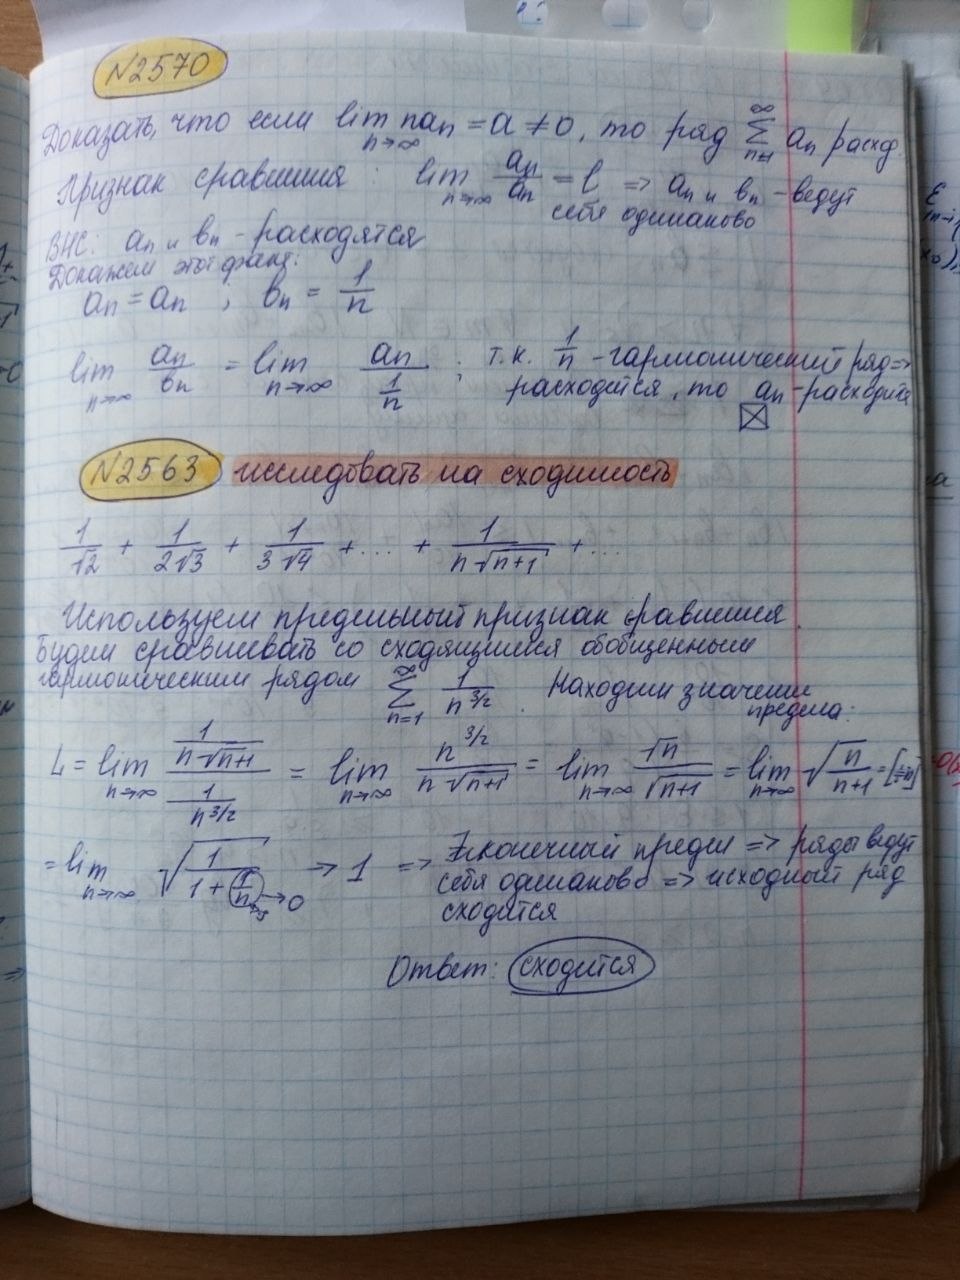 N2570
Доказать, что если lim n→∞ naₙ = a ≠ 0, то ряд ∑ n=1 ∞ aₙ расход.
Признак сравнения: lim n→∞ aₙ/aₙ = l => aₙ и bₙ - ведут
себя одинаково
aₙ и bₙ - расходятся
Докажем этот факт:
aₙ = aₙ , bₙ = 1/n
lim n→∞ aₙ/bₙ = lim n→∞ aₙ/(1/n) ; т.к. 1/n - гармонический ряд =>
расходится, то aₙ - расходится
N2563 исследовать на сходимость
1/√2 + 1/(2√3) + 1/(3√4) + ... + 1/(n√(n+1)) + ...
Используем предельный признак сравнения.
Будем сравнивать со сходящимися обобщенным
гармоническим рядом ∑ n=1 ∞ 1/n^(3/2). Находим значение
предела:
L = lim n→∞ (1/(n√(n+1)))/(1/n^(3/2)) = lim n→∞ n^(3/2)/(n√(n+1)) = lim n→∞ √n/√(n+1) = lim n→∞ √(n/(n+1)) = [∞/∞]
= lim n→∞ √(1/(1 + 1/n)) → 1 => конечный предел => ряды ведут
→0
себя одинаково => исходный ряд
сходится
Ответ: сходится